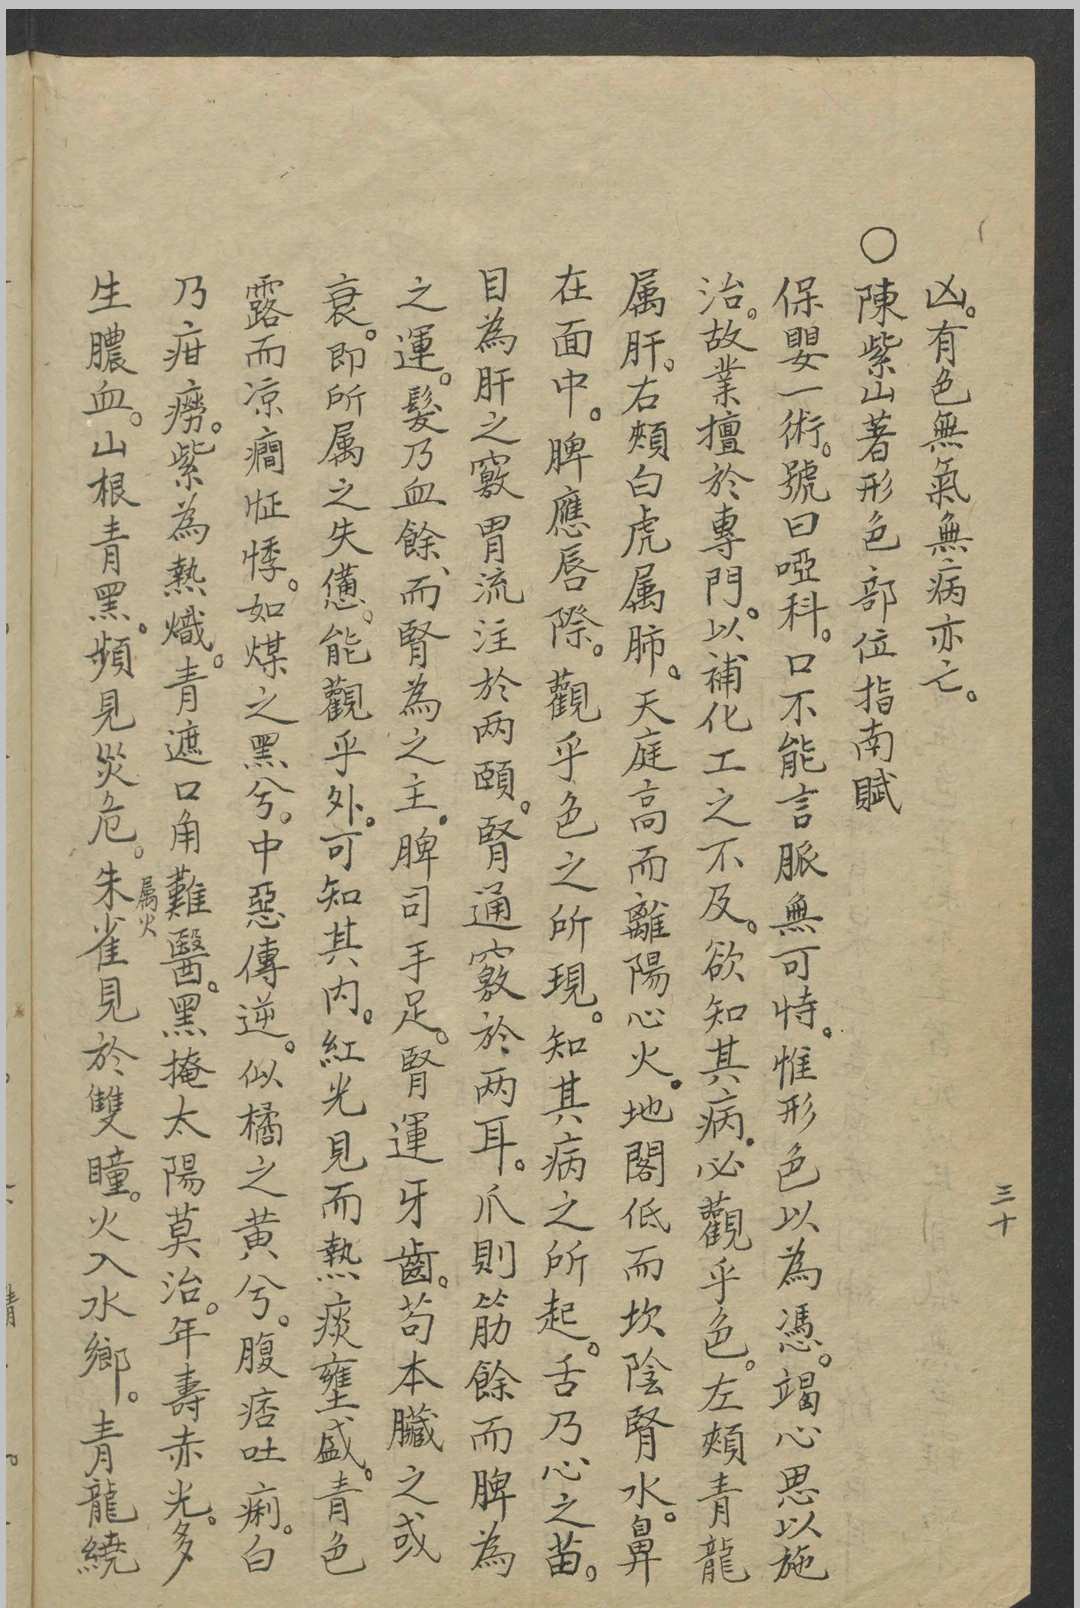 凶。有色無氣無病亦亡。
〇陳紫山著形色部位指南賦
保嬰一術。號曰啞科。口不能言脈無可恃。惟形色以為憑。竭心思以施
治。故業擅於專門。以補化工之不及。欲知其病。必觀乎色。左頰青龍
属肝。右頰白虎属肺。天庭高而離陽心火。地閣低而坎陰腎水。鼻
在面中。脾應唇際。觀乎色之所現。知其病之所起。舌乃心之苗。
目為肝之竅胃流注於两頤。腎通竅於两耳。爪則筋餘而脾為
之運。髮乃血餘、而腎為之主。脾司手足。腎運牙齒。苟本臟之或
衰。即所属之失僊。能觀乎外。可知其内。紅光見而熱痰壅盛。青色
露而凉癇怔悸。如煤之黑兮。中惡傳逆。似橘之黃兮。腹痞吐痢。白
乃疳癆。紫為熱熾。青遮口角難醫。黑掩太陽莫治。年壽赤光。多
生膿血。山根青黑。頻見災危。朱雀属火見於雙瞳。火入水鄉。青龍繞
三十